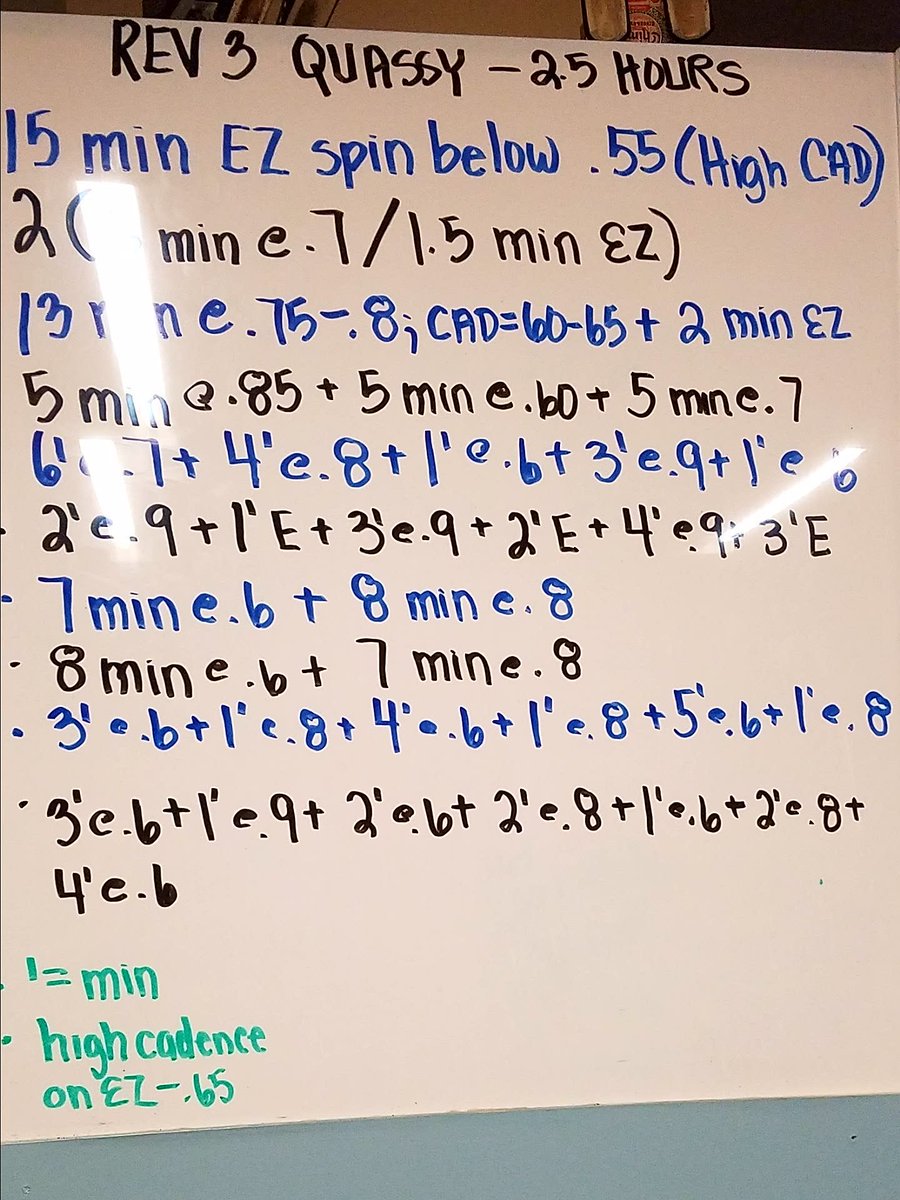 REV 3 QUASSY - 2.5 HOURS
15 min EZ spin below .55 (High CAD)
2 ( min @ .7/1.5 min EZ)
13 min @ .75-.8; CAD=60-65 + 2 min EZ
5 min @ .85 + 5 min @ .60 + 5 min @ .7
6' @ .7 + 4' @ .8 + 1' @ .6 + 3' @ .9 + 1' @ .6
2' @ .9 + 1' E + 3' @ .9 + 2' E + 4' @ .9 + 3' E
7 min @ .6 + 8 min @ .8
8 min @ .6 + 7 min @ .8
3' @ .6 + 1' @ .8 + 4' @ .6 + 1' @ .8 + 5' @ .6 + 1' @ .8
3' @ .6 + 1' @ .9 + 2' @ .6 + 2' @ .8 + 1' @ .6 + 2' @ .8 +
4' @ .6
' = min
high cadence
on EZ - .65